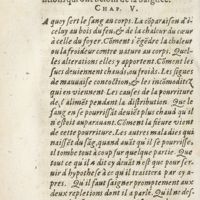 CHAP. V.
A quoy sert le sang au corps. La cõparaison d'i-
celuy au bois du feu, & de la chaleur du cœur
à celle du foyer. Cõment s'égédre la chaleur
ou la froideur contre nature au corps. Quel-
les alterations elles y apportent. Cõment les
sucs deuiennent chauds ou froids. Les signes
de mauuaise concoction, & les incõmoditez
qui en viennent. Les causes de la pourriture
de l'alimét pendant la distribution. Que le
sang en se pourrissãt deuiét plus chaud qu'il
n'estoit auparauant. Cõment la fieure vient
de cette pourriture. Les autres maladies qui
naissét du sãg, quand auãt qu'il se pourrisse,
il tombe tout à coup sur quelque partie. Que
tout ce qu'il a dit cy deuãt n'est que pour ser-
uir d'hypothese à ce qu'il traittera par cy a-
pres. Qu'il faut saigner promptement aux
deux repletions dont il a parlé. Qu'il ne def-